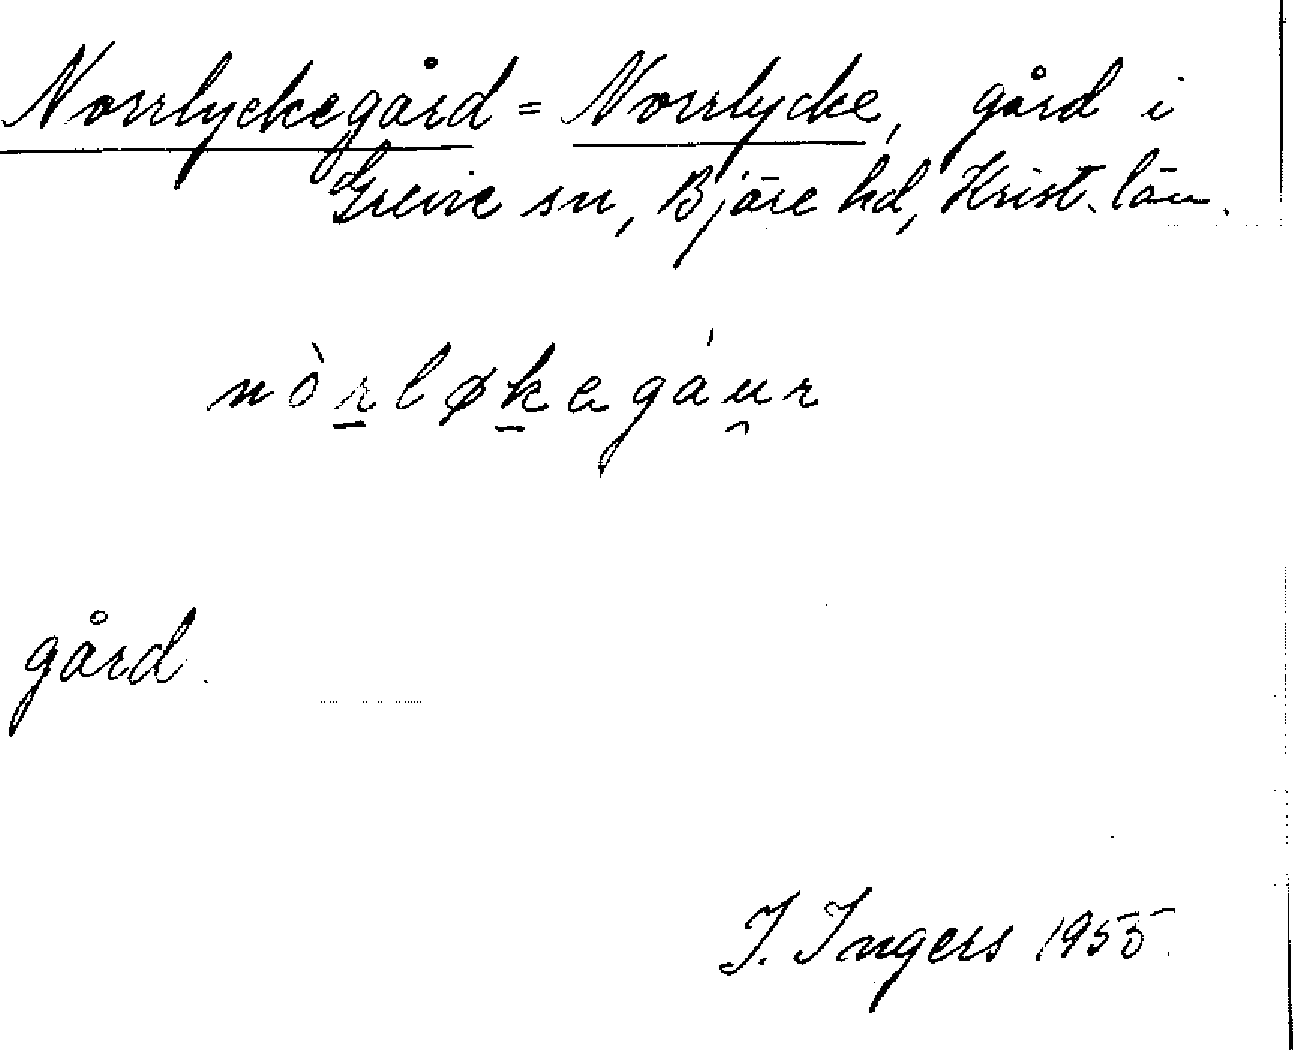 Norrlyckegård = Norrlycke, gård i
Grevie sn, Bjäre hd, Krist. län.
nòr̲løk̲egáu̯r
gård.
I. Ingers 1955.